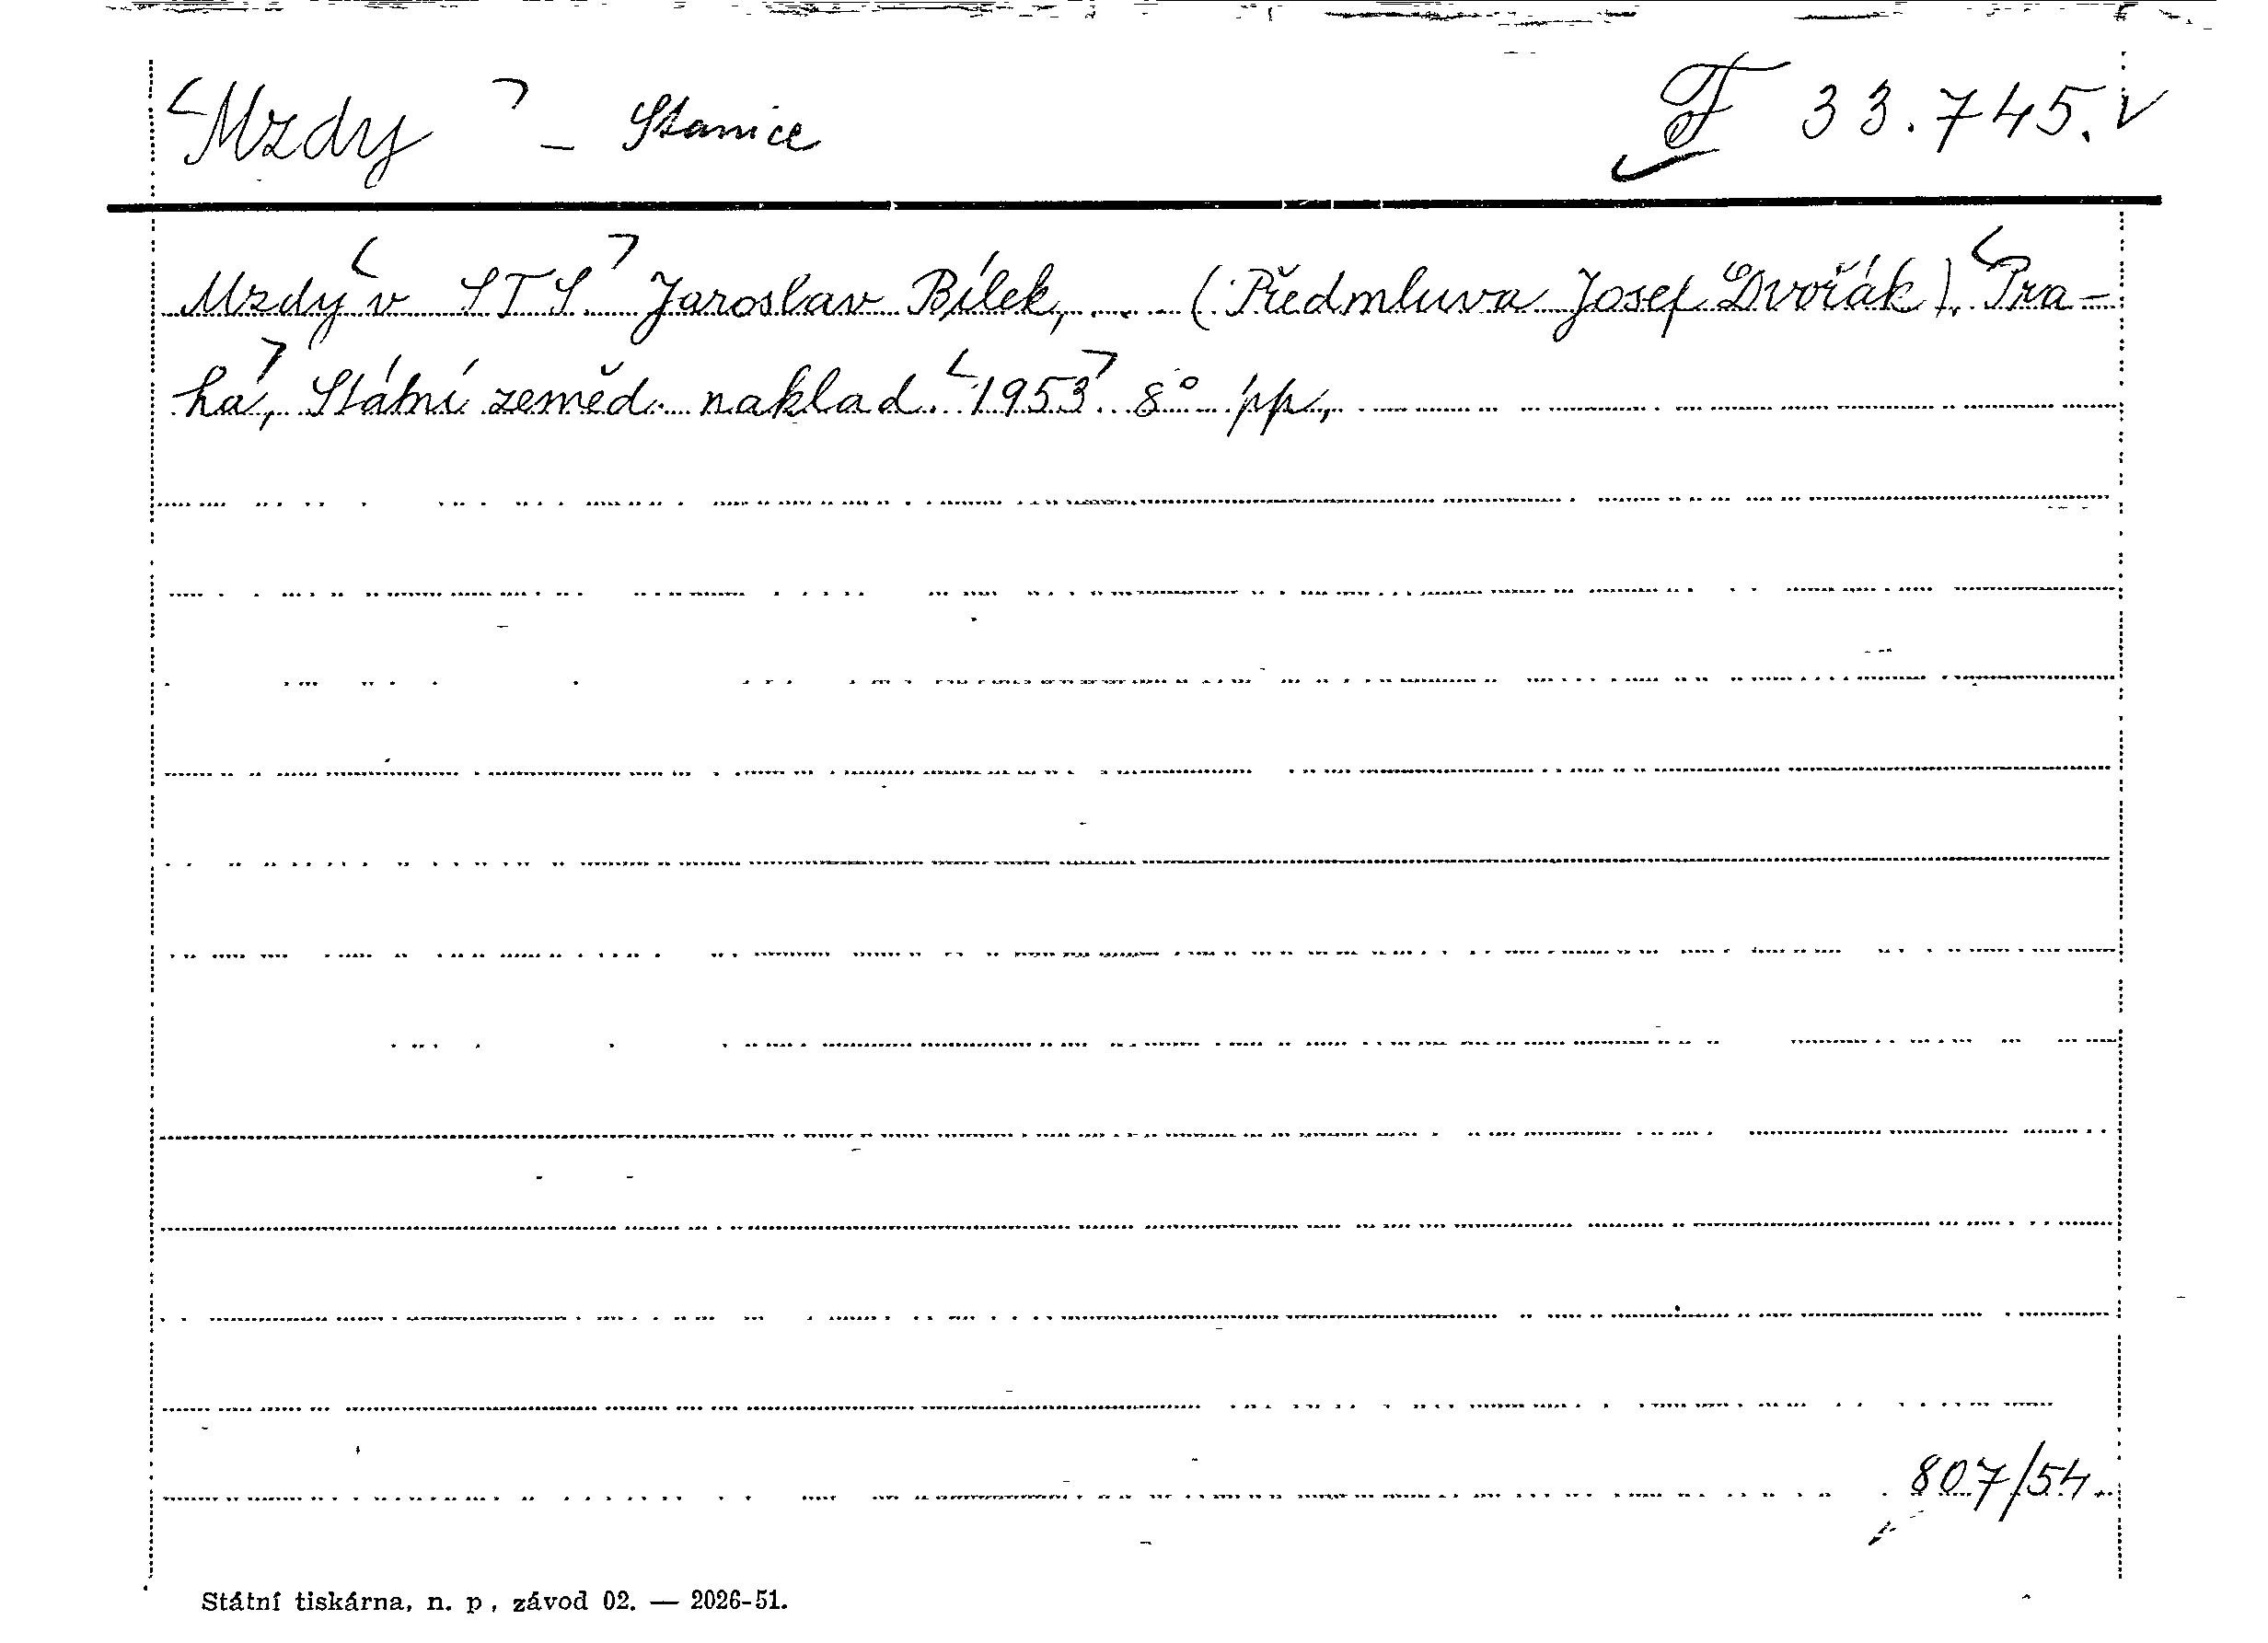 Mzdy – Stanice F 33.745.V
Mzdy v STS Jaroslav Bílek, ... (Předmluva Josef Dvořák). Pra-
ha, Státní zeměd. naklad. 1953. 8° pp,
807/54.
Státní tiskárna, n. p., závod 02. — 2026-51.